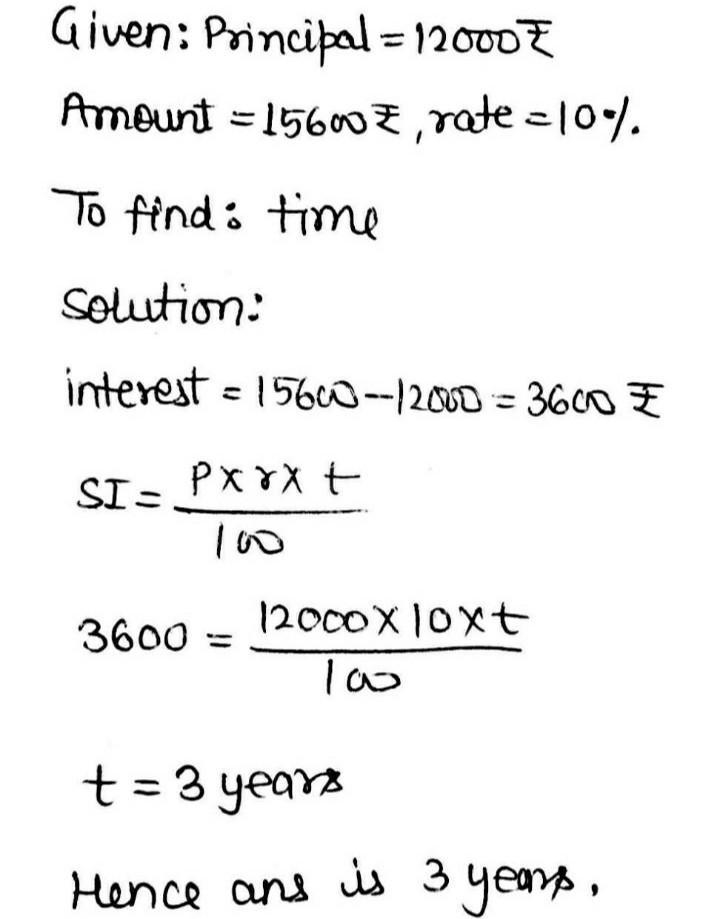 Given: Principal = 12000₹
Amount = 15600₹, rate = 10%.
To find: time
Solution:
interest = 15600--12000 = 3600 ₹
SI = P x r x t
100
3600 = 12000 x 10 x t
100
t = 3 years
Hence ans is 3 years.